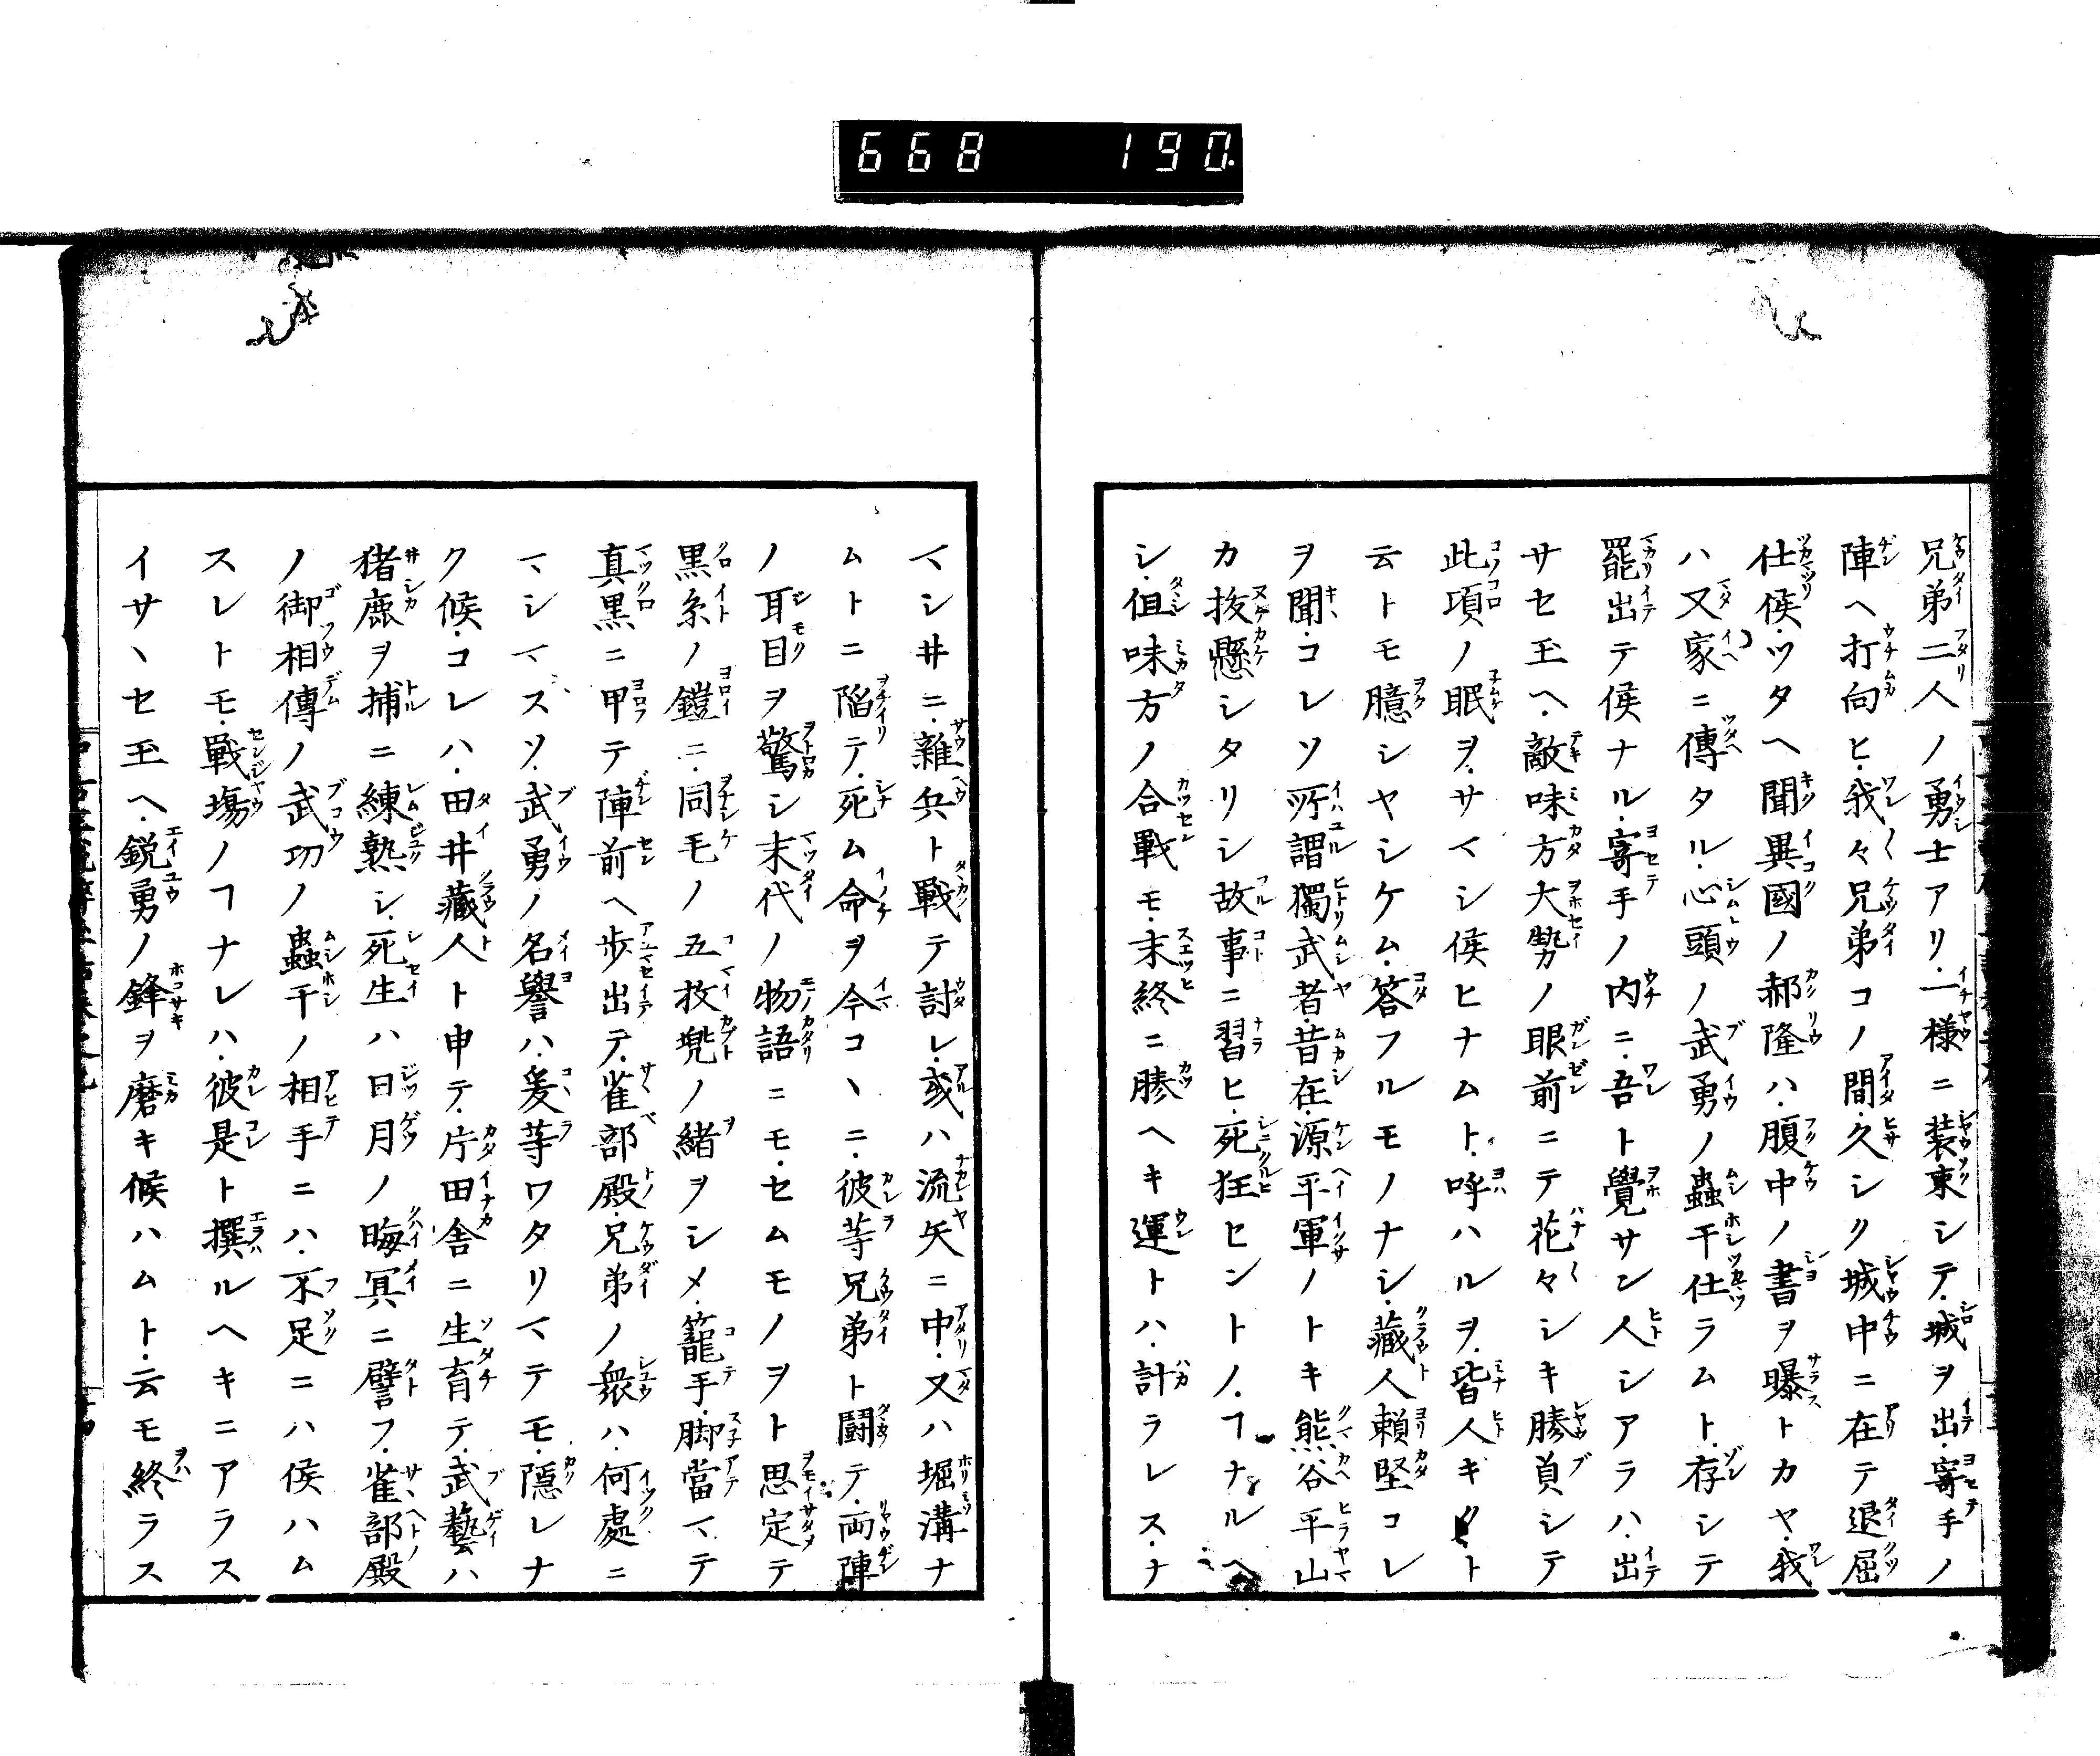 668 190.
兄弟二人ノ勇士アリ.一様ニ装束シテ.城ヲ出.寄手ノ
陣ヘ打向ヒ.我々兄弟コノ間.久シク城中ニ在テ退屈
仕候.ツタヘ聞異國ノ郝隆ハ.腹中ノ書ヲ曝トカヤ.我
ハ又家ニ傳タル.心頭ノ武勇ノ蟲干仕ラムト.存シテ
罷出テ候ナル.寄手ノ内ニ.吾ト覺サン人シアラハ.出
サセ玉ヘ.敵味方大勢ノ眼前ニテ花々シキ勝負シテ
此項ノ眠ヲ.サマシ候ヒナムト.呼ハルヲ.皆人ギクト
云トモ臆シヤシケム.答フルモノナシ.藏人頼堅コレ
ヲ聞.コレソ所謂獨武者.昔在.源平軍ノトキ熊谷平山
カ抜懸シタリシ故事ニ習ヒ.死狂セントノ.ヿナルヘ
シ.但味方ノ合戰モ.末終ニ勝ヘキ運トハ.計ラレス.ナ
マシ井ニ.雜兵ト戰テ討レ.或ハ流矢ニ中.又ハ堀溝ナ
ムトニ陷テ.死ム命ヲ今コヽニ.彼等兄弟ト闘テ.両陣
ノ耳目ヲ驚シ末代ノ物語ニモ.セムモノヲト思定テ
黒糸ノ鎧ニ.同毛ノ五枚兜ノ緒ヲシメ.籠手.脚當マテ
真黒ニ甲テ陣前ヘ歩出テ.雀部殿.兄弟ノ衆ハ.何處ニ
マシマスソ.武勇ノ名譽ハ.爰等ワタリマテモ.隱レナ
ク候.コレハ.田井藏人ト申テ.片田舎ニ生育テ.武藝ハ
猪鹿ヲ捕ニ練熟シ.死生ハ日月ノ晦冥ニ譬フ.雀部殿
ノ御相傳ノ武功ノ蟲干ノ相手ニハ.不足ニハ候ハム
スレトモ.戰塲ノヿナレハ.彼是ト撰ルヘキニアラス
イサヽセ玉ヘ.鋭勇ノ鋒ヲ磨キ候ハムト.云モ終ラス